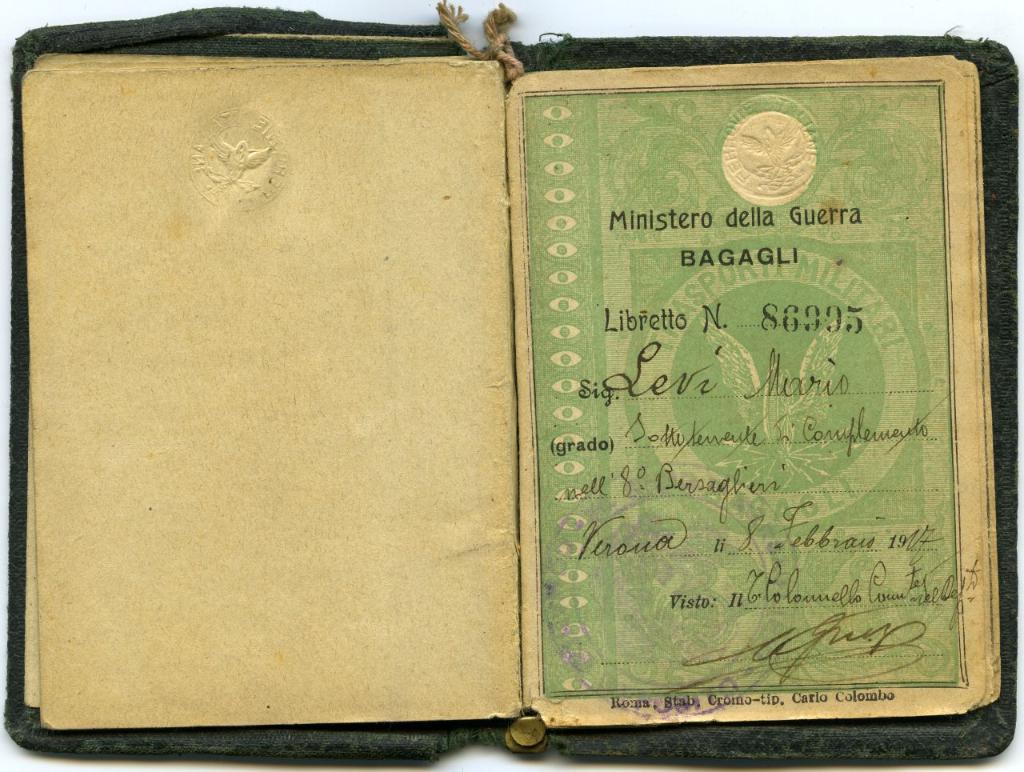 Ministero della Guerra
BAGAGLI
TRASPORTI MILITARI
Libretto N. 86995
Sig. Levi Mario
(grado) Sottotenente di Complemento
nell' 8º Bersaglieri
Verona li 8 Febbraio 1917
Visto: Il T. Colonnello Com.te del
Roma, Stab. Cromo-tip. Carlo Colombo